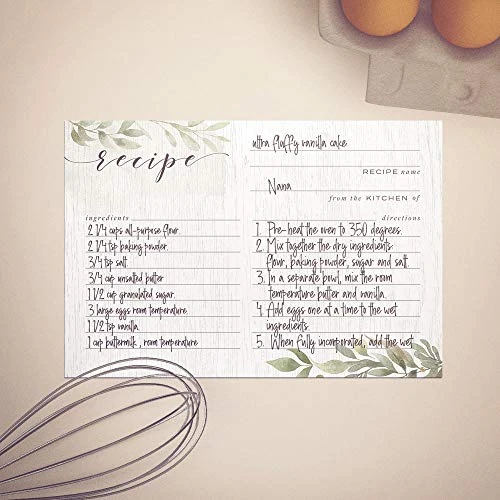 recipe
ultra fluffy vanilla cake
RECIPE name
Nana
from the KITCHEN of
ingredients
2 1/4 cups all-purpose flour.
2 1/4 tsp baking powder.
3/4 tsp salt.
3/4 cup unsalted butter
1 1/2 cup granulated sugar.
3 large eggs room temperature.
1 1/2 tsp vanilla.
1 cup buttermilk , room temperature
directions
1. Pre-heat the oven to 350 degrees.
2. Mix together the dry ingredients:
flour, baking powder, sugar and salt.
3. In a separate bowl, mix the room
temperature butter and vanilla.
4. Add eggs one at a time to the wet
ingredients.
5. When fully incorporated, add the wet